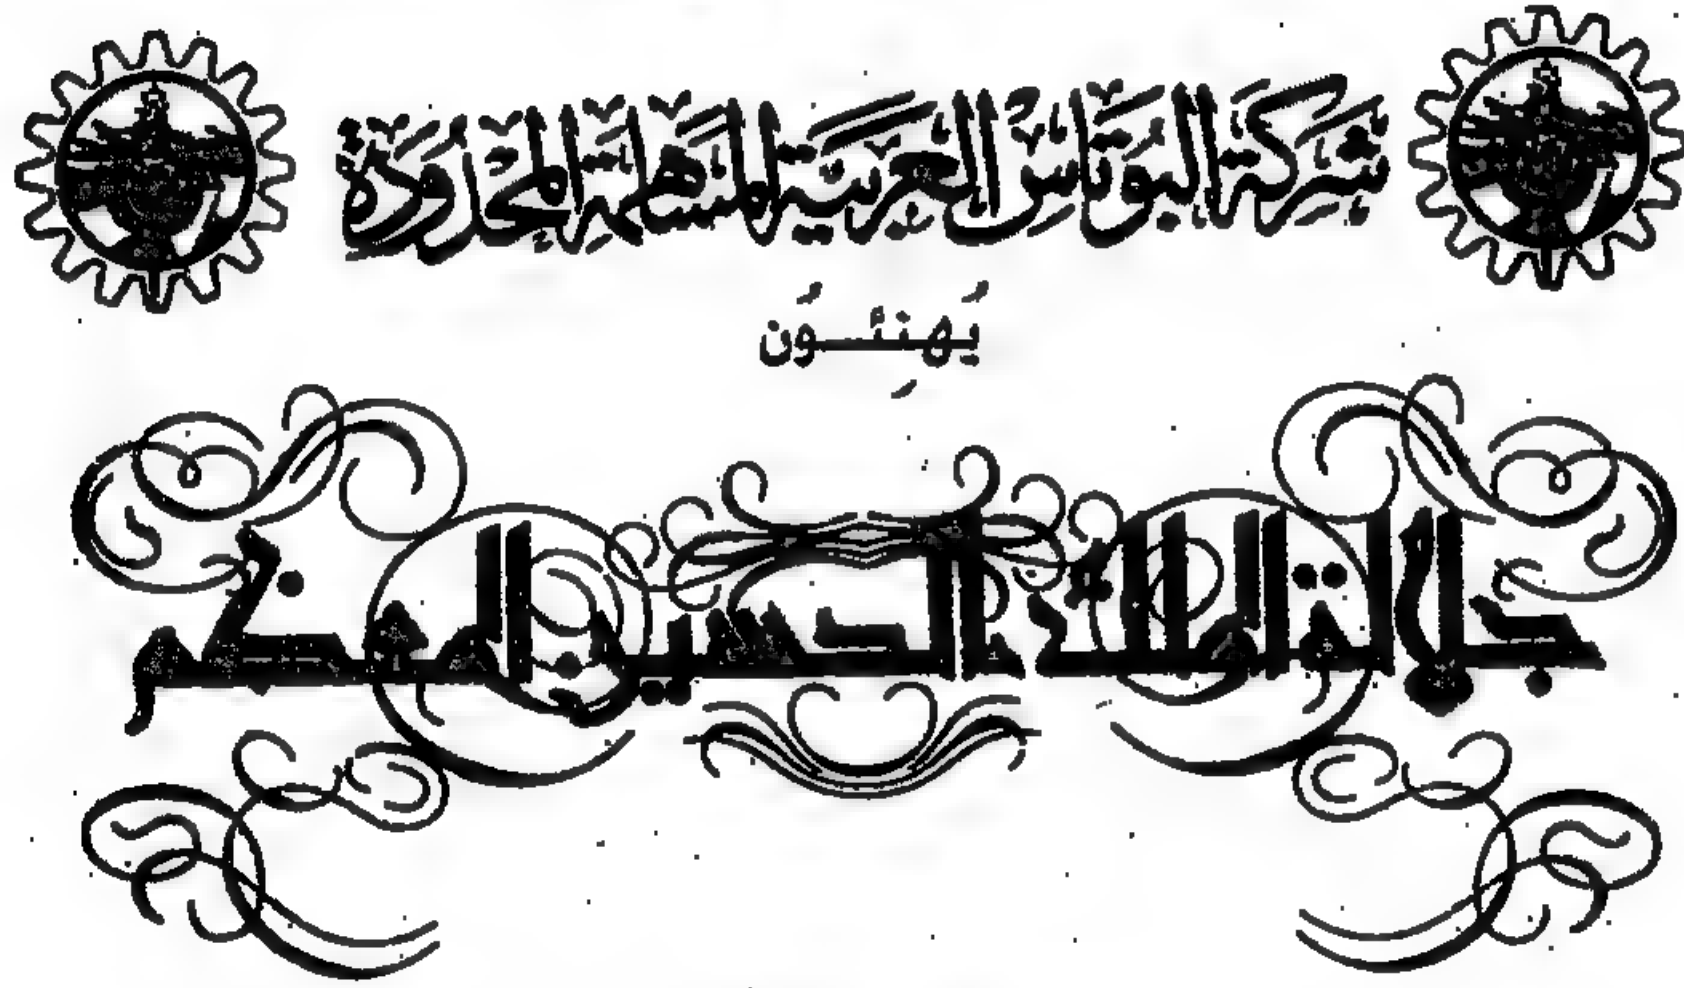 شركة البوتاس العربية المساهمة المحدودة
يُهنِئُون
جلالة الملك الحسين المعظم